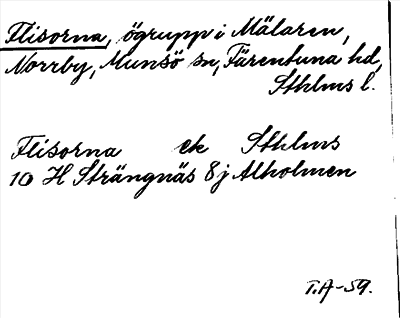 Flisorna, ögrupp i Mälaren,
Norrby, Munsö sn, Färentuna hd,
Sthlms l.
Flisorna ek Sthlms
10 H Strängnäs 8j Alholmen
T.A-59.